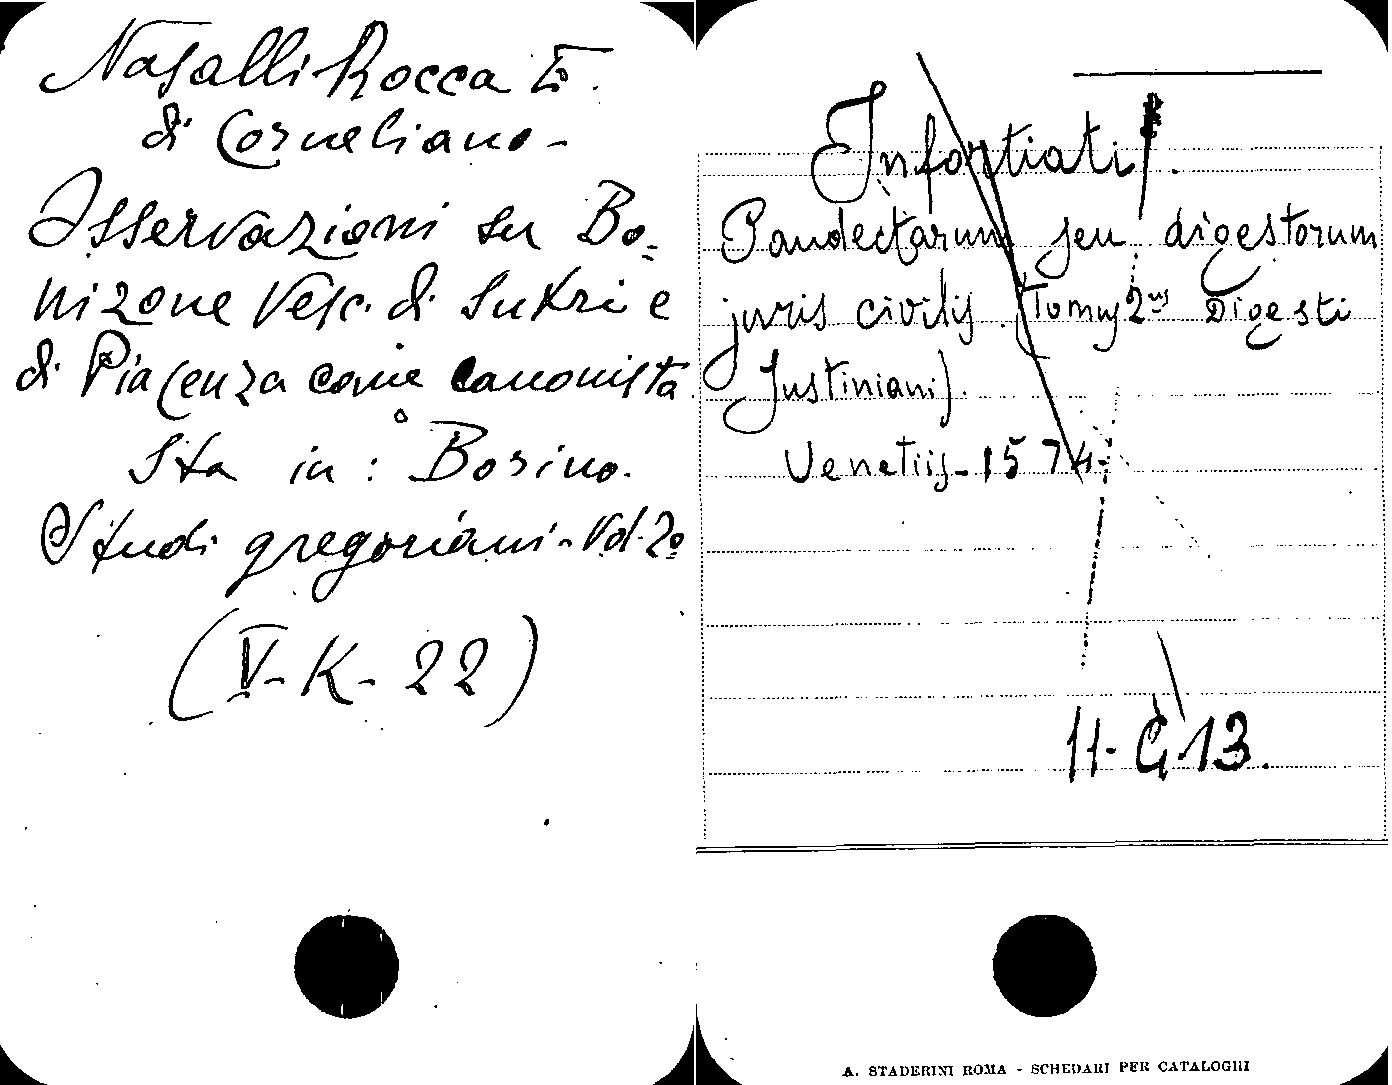 Nasalli Rocca E.
di Corneliano -
Osservazioni su Bo=
nizone Vesc. di Sutri e
di Piacenza come canonista.
Sta in: Bosino.
Studi gregoriani - Vol. 2º
(V - K - 22)
Infortiati.
Pandectarum seu digestorum
juris civilis. (Tomus 2us Digesti
Justiniani).
Venetiis - 1574.
11 - G 13.
A. STADERINI ROMA - SCHEDARI PER CATALOGHI